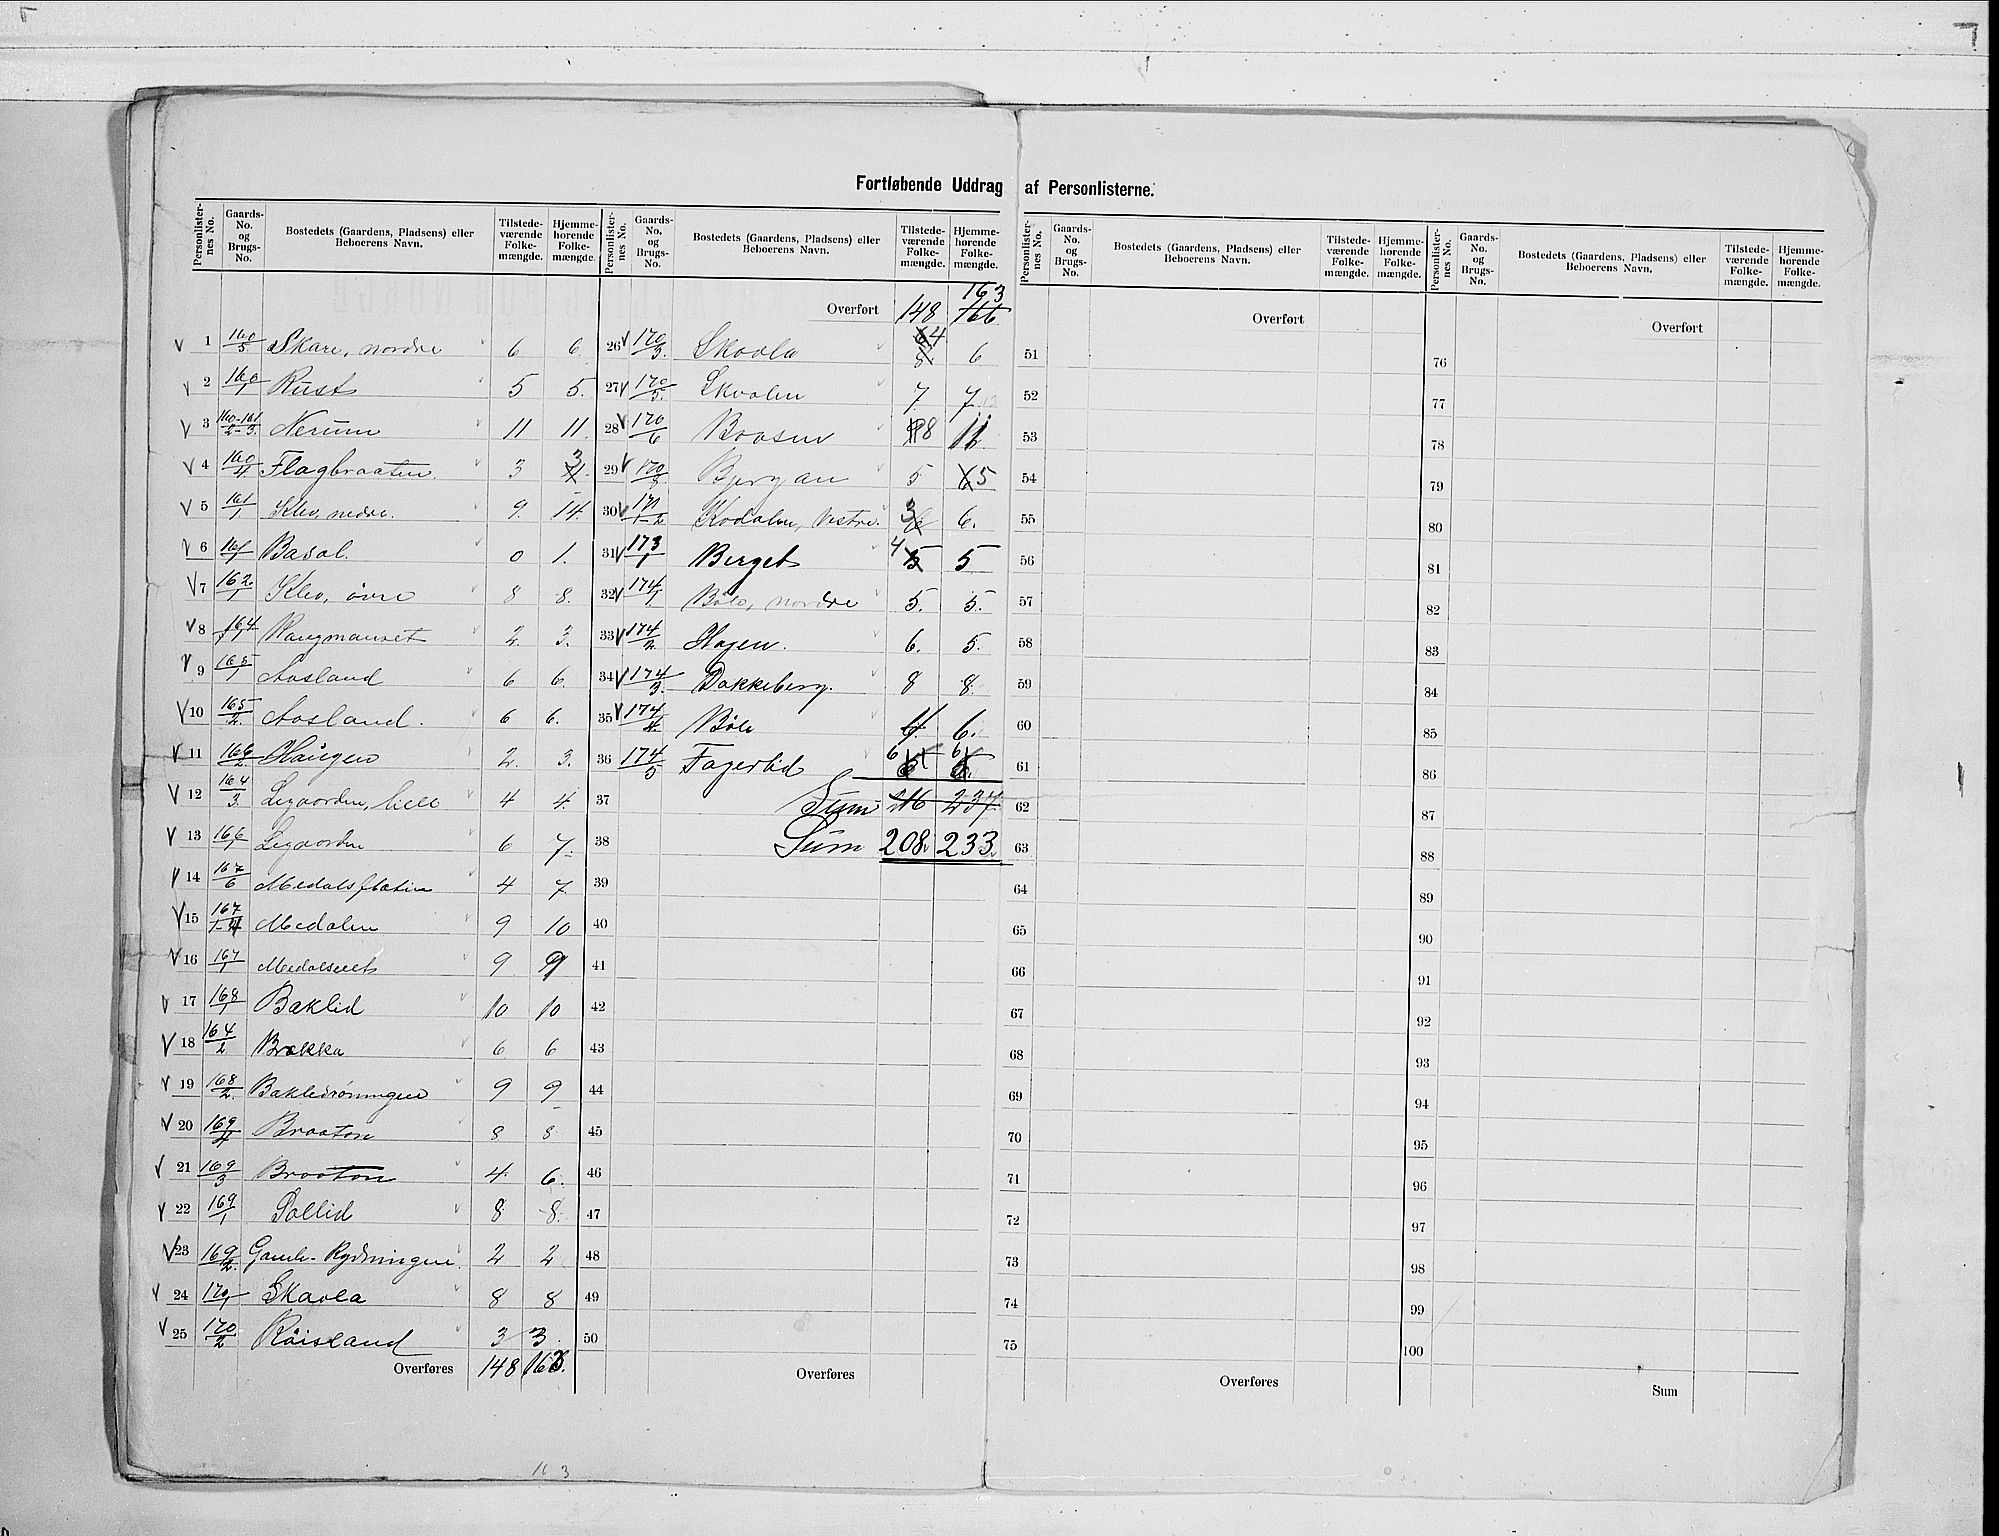 Fortløbende Uddrag af Personlisterne.
Personlisternes No. Gaards-No. og Brugs-No. Bostedets (Gaardens, Pladsens) eller Beboerens Navn. Tilstedeværende Folkemængde. Hjemmehørende Folkemængde.
V 1 160/5. Skare, nordre 6 6.
V 2 160/1 Rust 5 5.
V 3 160-161/2-3. Nerum 11 11.
V 4 160/4 Flagbraaten. 3 3
V 5 161/1. Klev, nedre. 9. 14.
V 6 161/1 Basal. 0 1.
V 7 162./1 Klev, övre 8 8.
V 8 164/1 2. 3.
V 9 165/1 Aasland 6 6.
V 10 165/2. Aasland. 6 6.
V 11 166/2 Haugen 2. 3.
V 12 164/3. Legaarden, lille 4 4.
V 13 166/1 Legaarden 6 7.
V 14 167/6 Medalsflatin 4 7.
V 15 167/1-4 Medalen 9 10
V 16 167/1 9 9
V 17 168/1 Baklid 10 10
V 18 164/2 Brekka 6 6
V 19 168/2. 9 9
V 20 169/4 Braaton 8 8
V 21 169/3 Braaton 4. 6.
V 22 169/1 Sollid 8 8.
V 23 169/2. Gamle-Rydningen. 2 2
V 24 170/1 Skavla 8 8
V 25 170/2 Röisland 3 3
Overføres 148 163.
Personlisternes No. Gaards-No. og Brugs-No. Bostedets (Gaardens, Pladsens) eller Beboerens Navn. Tilstedeværende Folkemængde. Hjemmehørende Folkemængde.
163
Overført 148 166
26 V 170/3. Skavla 4 6
27 V 170/5. 7. 7.
28 V 170/6 8 11
29 V 170/8 Bjergan 5 5
30 V 171/1-2 Kodalen, vestre. 3 6.
31 V 173/1 Berget 4 5 5.
32 V 174/1 Böle, nordre 5. 5.
33 V 174/2. Hagen. 6. 5.
34 V 174/3. Dokkeberg. 8 8.
35 V 174/4. Böle 4. 6.
36 174/5 Fagerlid 6 6
37 Sum 216 237.
38 Sum 208. 233.
39
40
41
42
43
44
45
46
47
48
49
50
Overføres
Personlisternes No. Gaards-No. og Brugs-No. Bostedets (Gaardens, Pladsens) eller Beboerens Navn. Tilstedeværende Folkemængde. Hjemmehørende Folkemængde.
Overført
51
52
53
54
55
56
57
58
59
60
61
62
63
64
65
66
67
68
69
70
71
72
73
74
75
Overføres
Personlisternes No. Gaards-No. og Brugs-No. Bostedets (Gaardens, Pladsens) eller Beboerens Navn. Tilstedeværende Folkemængde. Hjemmehørende Folkemængde.
Overført
76
77
78
79
80
81
82
83
84
85
86
87
88
89
90
91
92
93
94
95
96
97
98
99
100
Sum
163